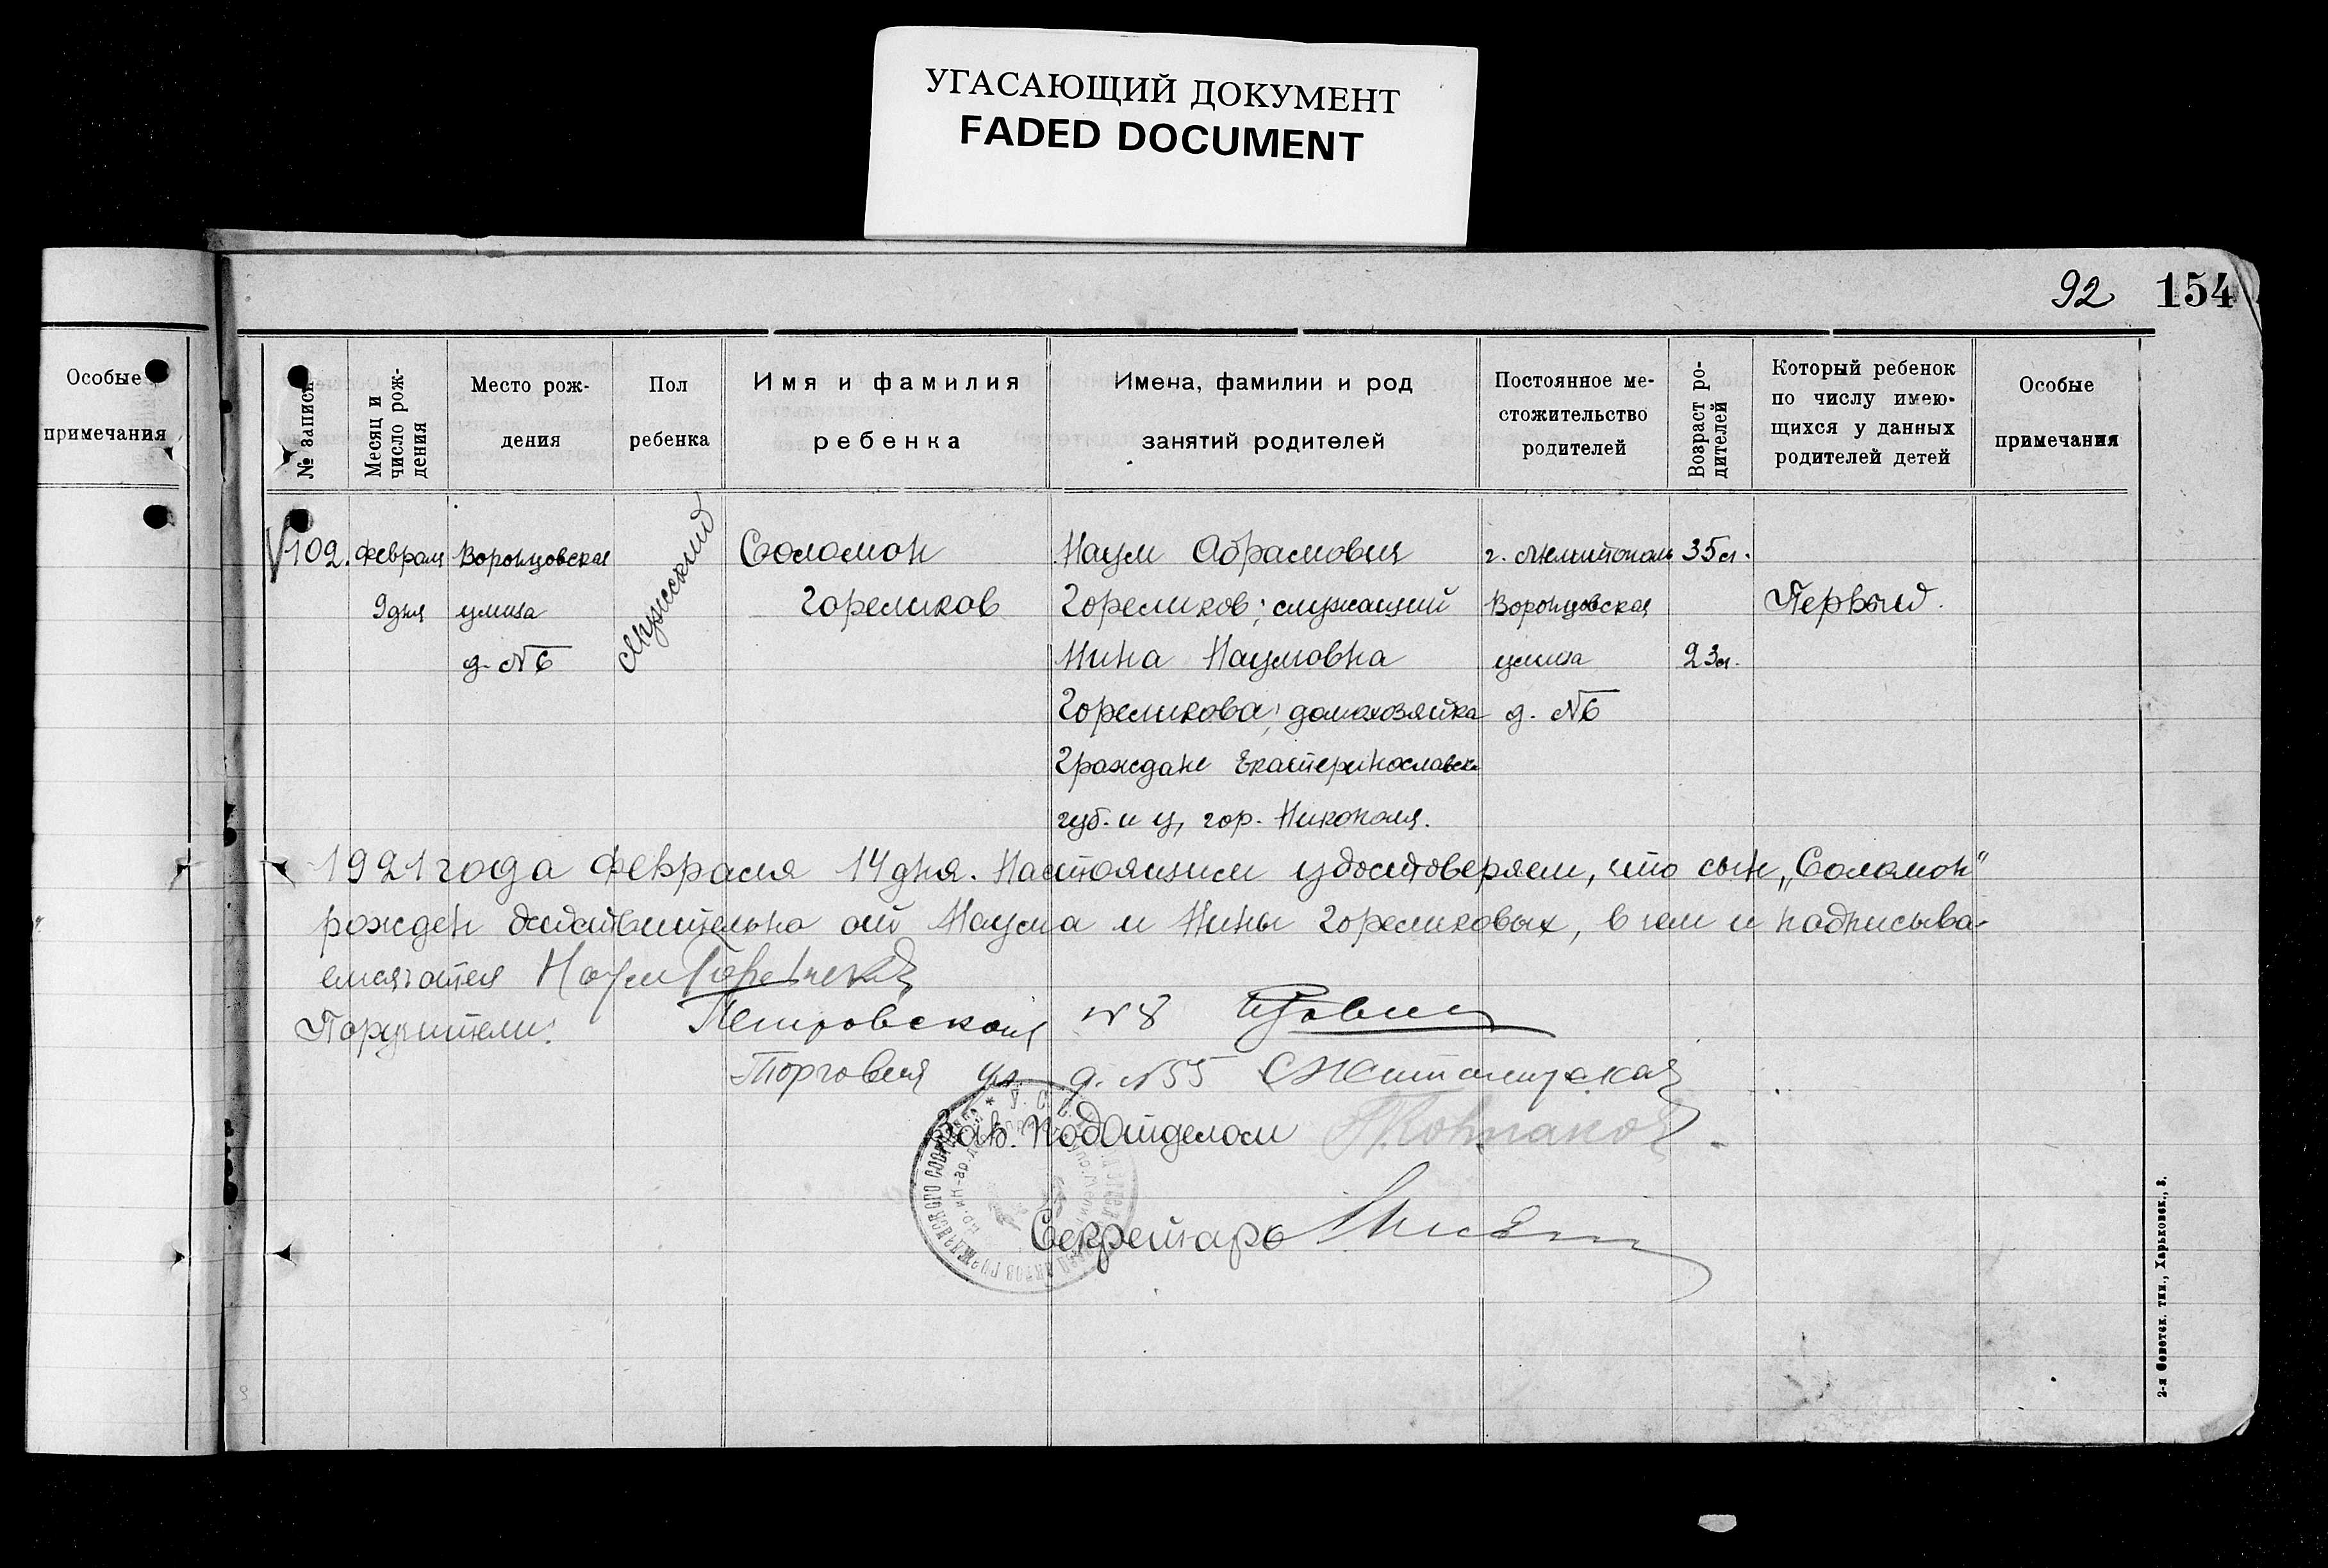 УГАСАЮЩИЙ ДОКУМЕНТ
FADED DOCUMENT
92 154
Особые
примечания
№ записи
Месяц и число рож-
дения
Место рож-
дения
Пол
ребенка
Имя и фамилия
ребенка
Имена, фамилии и род
занятий родителей
Постоянное ме-
стожительство
родителей
Возраст ро-
дителей
Который ребенок
по числу имею-
щихся у данных
родителей детей
Особые
примечания
102.
Февраля
9 дня
Воронцовская
улица
д. № 6
Мужский
Соломон
Гореликов
Наум Абрамович
Гореликов; служащий
Нина Наумовна
Гореликова; домохозяйка
Граждане Екатеринославск
губ. и у, гор. Никополя.
г. Мелитополь
Воронцовская
улица
д. № 6
35 л.
23 л.
Первый.
1921 года Февраля 14 дня. Настоящим удостоверяем, что сын „Соломон"
рожден действительно от Наума и Нины Гореликовых, в чем и подписыва-
емся: отец Наум Гореликов
Поручители:
Петровская № 8
Торговая ул. д. № 55 Житомирская
Зав. Подотделом
Секретарь
2-я Советск. тип., Харьковск., 8.